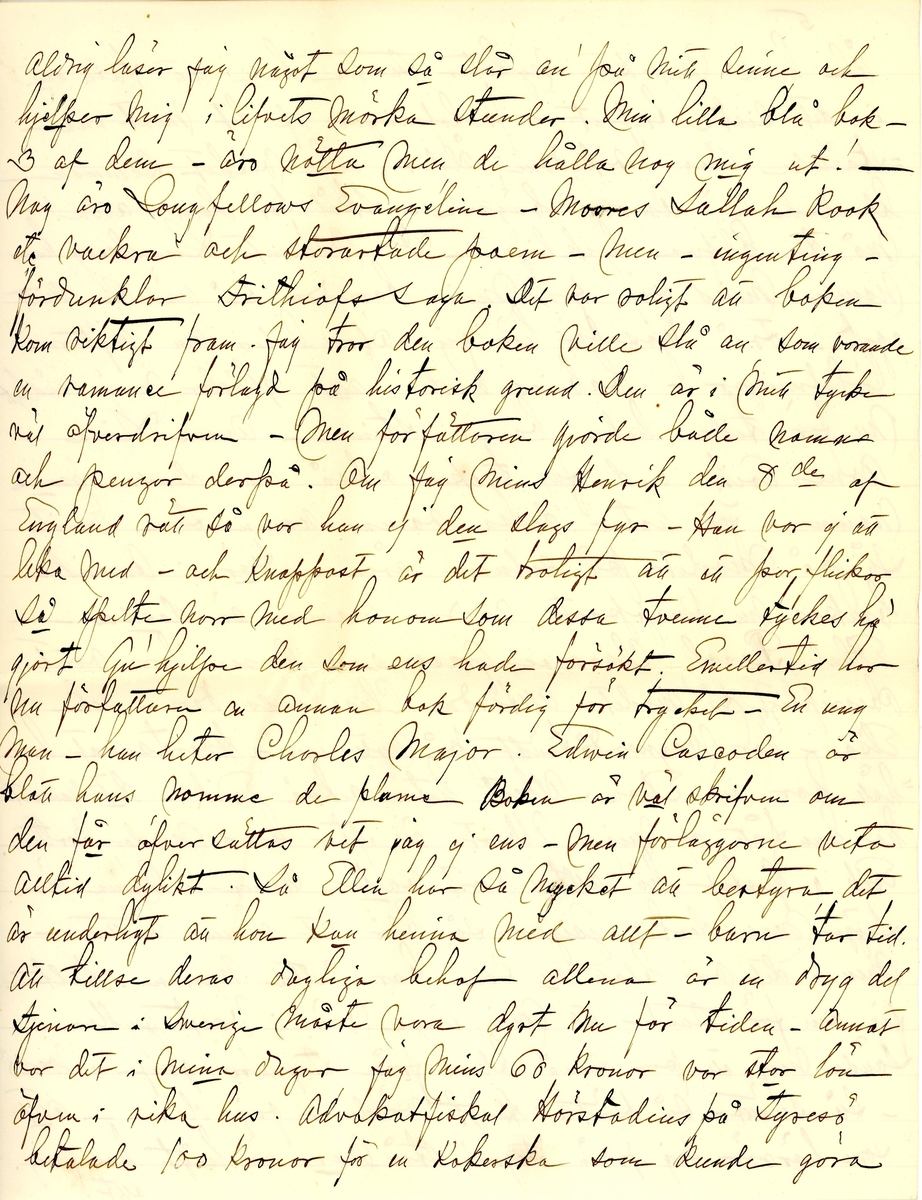 Aldrig läser jag något som så slår an på mitt sinne och
hjelper mig i lifvets mörka stunder. Min lilla blå bok –
3 af dem – äro nötta men de hålla nog mig ut! –
Nog äro Longfellows Evangeline – Moores Lallah Rook
etc vackra och storartade poem – men – ingenting –
fördunklar Frithiofs Saga. Det var roligt att boken
kom riktigt fram. Jag tror den boken ville slå an som varande
en romance förlagd på historisk grund. Den är i mitt tycke
väl öfverdrifven – Men författaren gjorde både namne
och pengar derpå. Om jag mins Henrik den 8de af
England rätt så var han ej den slags fyr – Han var ej att
leka med – och knappast är det troligt att ett par flickor
så spelte narr med honom som dessa tvenne tyckes ha
gjort Gu' hjelpe den som ens hade försökt. Emellertid har
nu författaren en annan bok färdig för trycket – En ung
man – han heter Charles Major. Edwin Cascoden är
blott hans nomme de plume Boken är väl skrifven om
den får öfversättas vet jag ej ens – men förläggarne veta
alltid dylikt. Så Ellen har så mycket att bestyra det
är underligt att hon kan hinna med allt – barn tar tid.
Att tillse deras dagliga behof allena är en dryg del
tjenare i Sverige måste vara dyrt nu för tiden – Annat
var det i mina dagar jag mins 60 kronor var stor lön
äfven i rika hus. Advokatfiskal Hörstadius på Tyresö
betalade 100 kronor för en kokerska som kunde göra